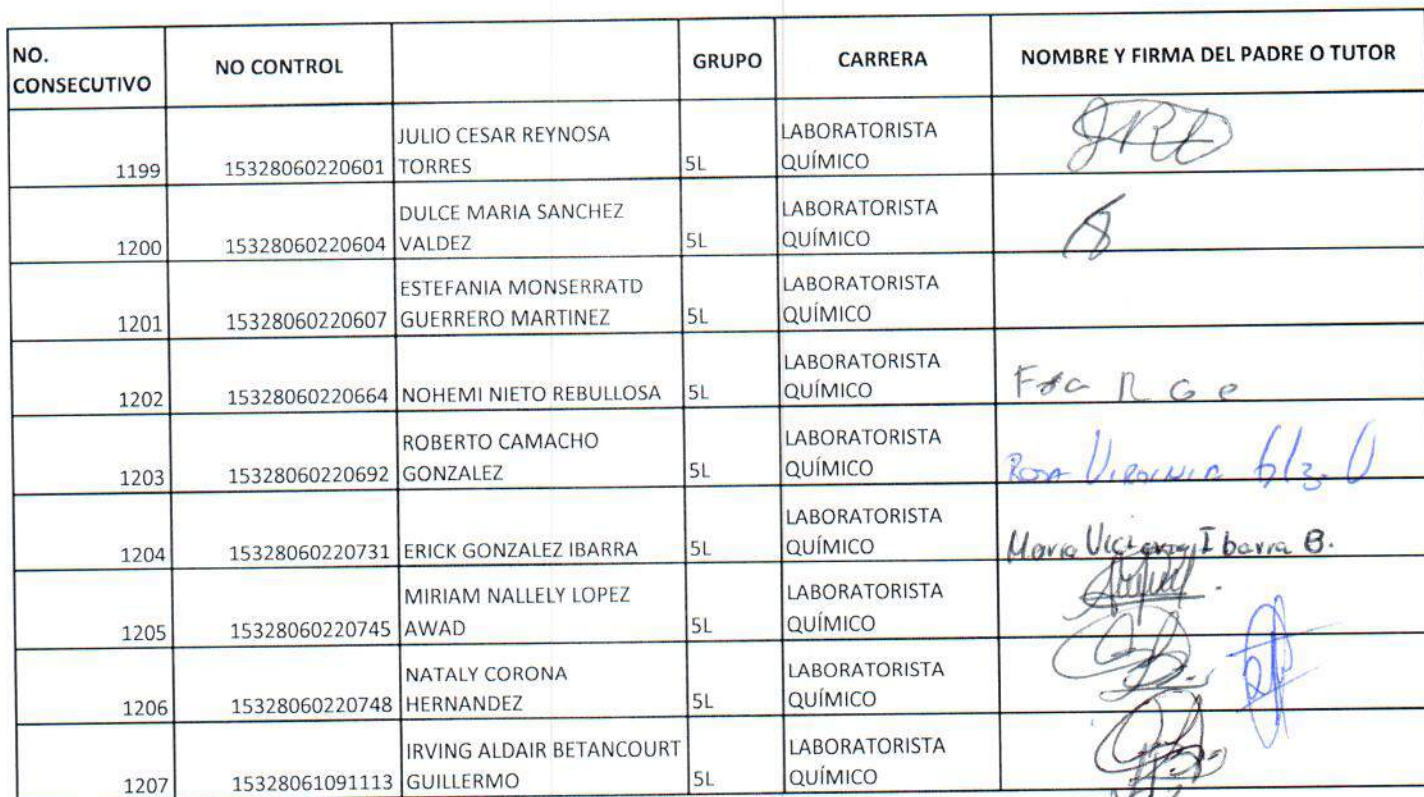 NO. CONSECUTIVO NO CONTROL GRUPO CARRERA NOMBRE Y FIRMA DEL PADRE O TUTOR
1199 15328060220601 JULIO CESAR REYNOSA TORRES 5L LABORATORISTA QUÍMICO
1200 15328060220604 DULCE MARIA SANCHEZ VALDEZ 5L LABORATORISTA QUÍMICO
1201 15328060220607 ESTEFANIA MONSERRATD GUERRERO MARTINEZ 5L LABORATORISTA QUÍMICO
1202 15328060220664 NOHEMI NIETO REBULLOSA 5L LABORATORISTA QUÍMICO
1203 15328060220692 ROBERTO CAMACHO GONZALEZ 5L LABORATORISTA QUÍMICO Rosa Virginia
1204 15328060220731 ERICK GONZALEZ IBARRA 5L LABORATORISTA QUÍMICO Maria Victoria Ibarra B.
1205 15328060220745 MIRIAM NALLELY LOPEZ AWAD 5L LABORATORISTA QUÍMICO
1206 15328060220748 NATALY CORONA HERNANDEZ 5L LABORATORISTA QUÍMICO
1207 15328061091113 IRVING ALDAIR BETANCOURT GUILLERMO 5L LABORATORISTA QUÍMICO